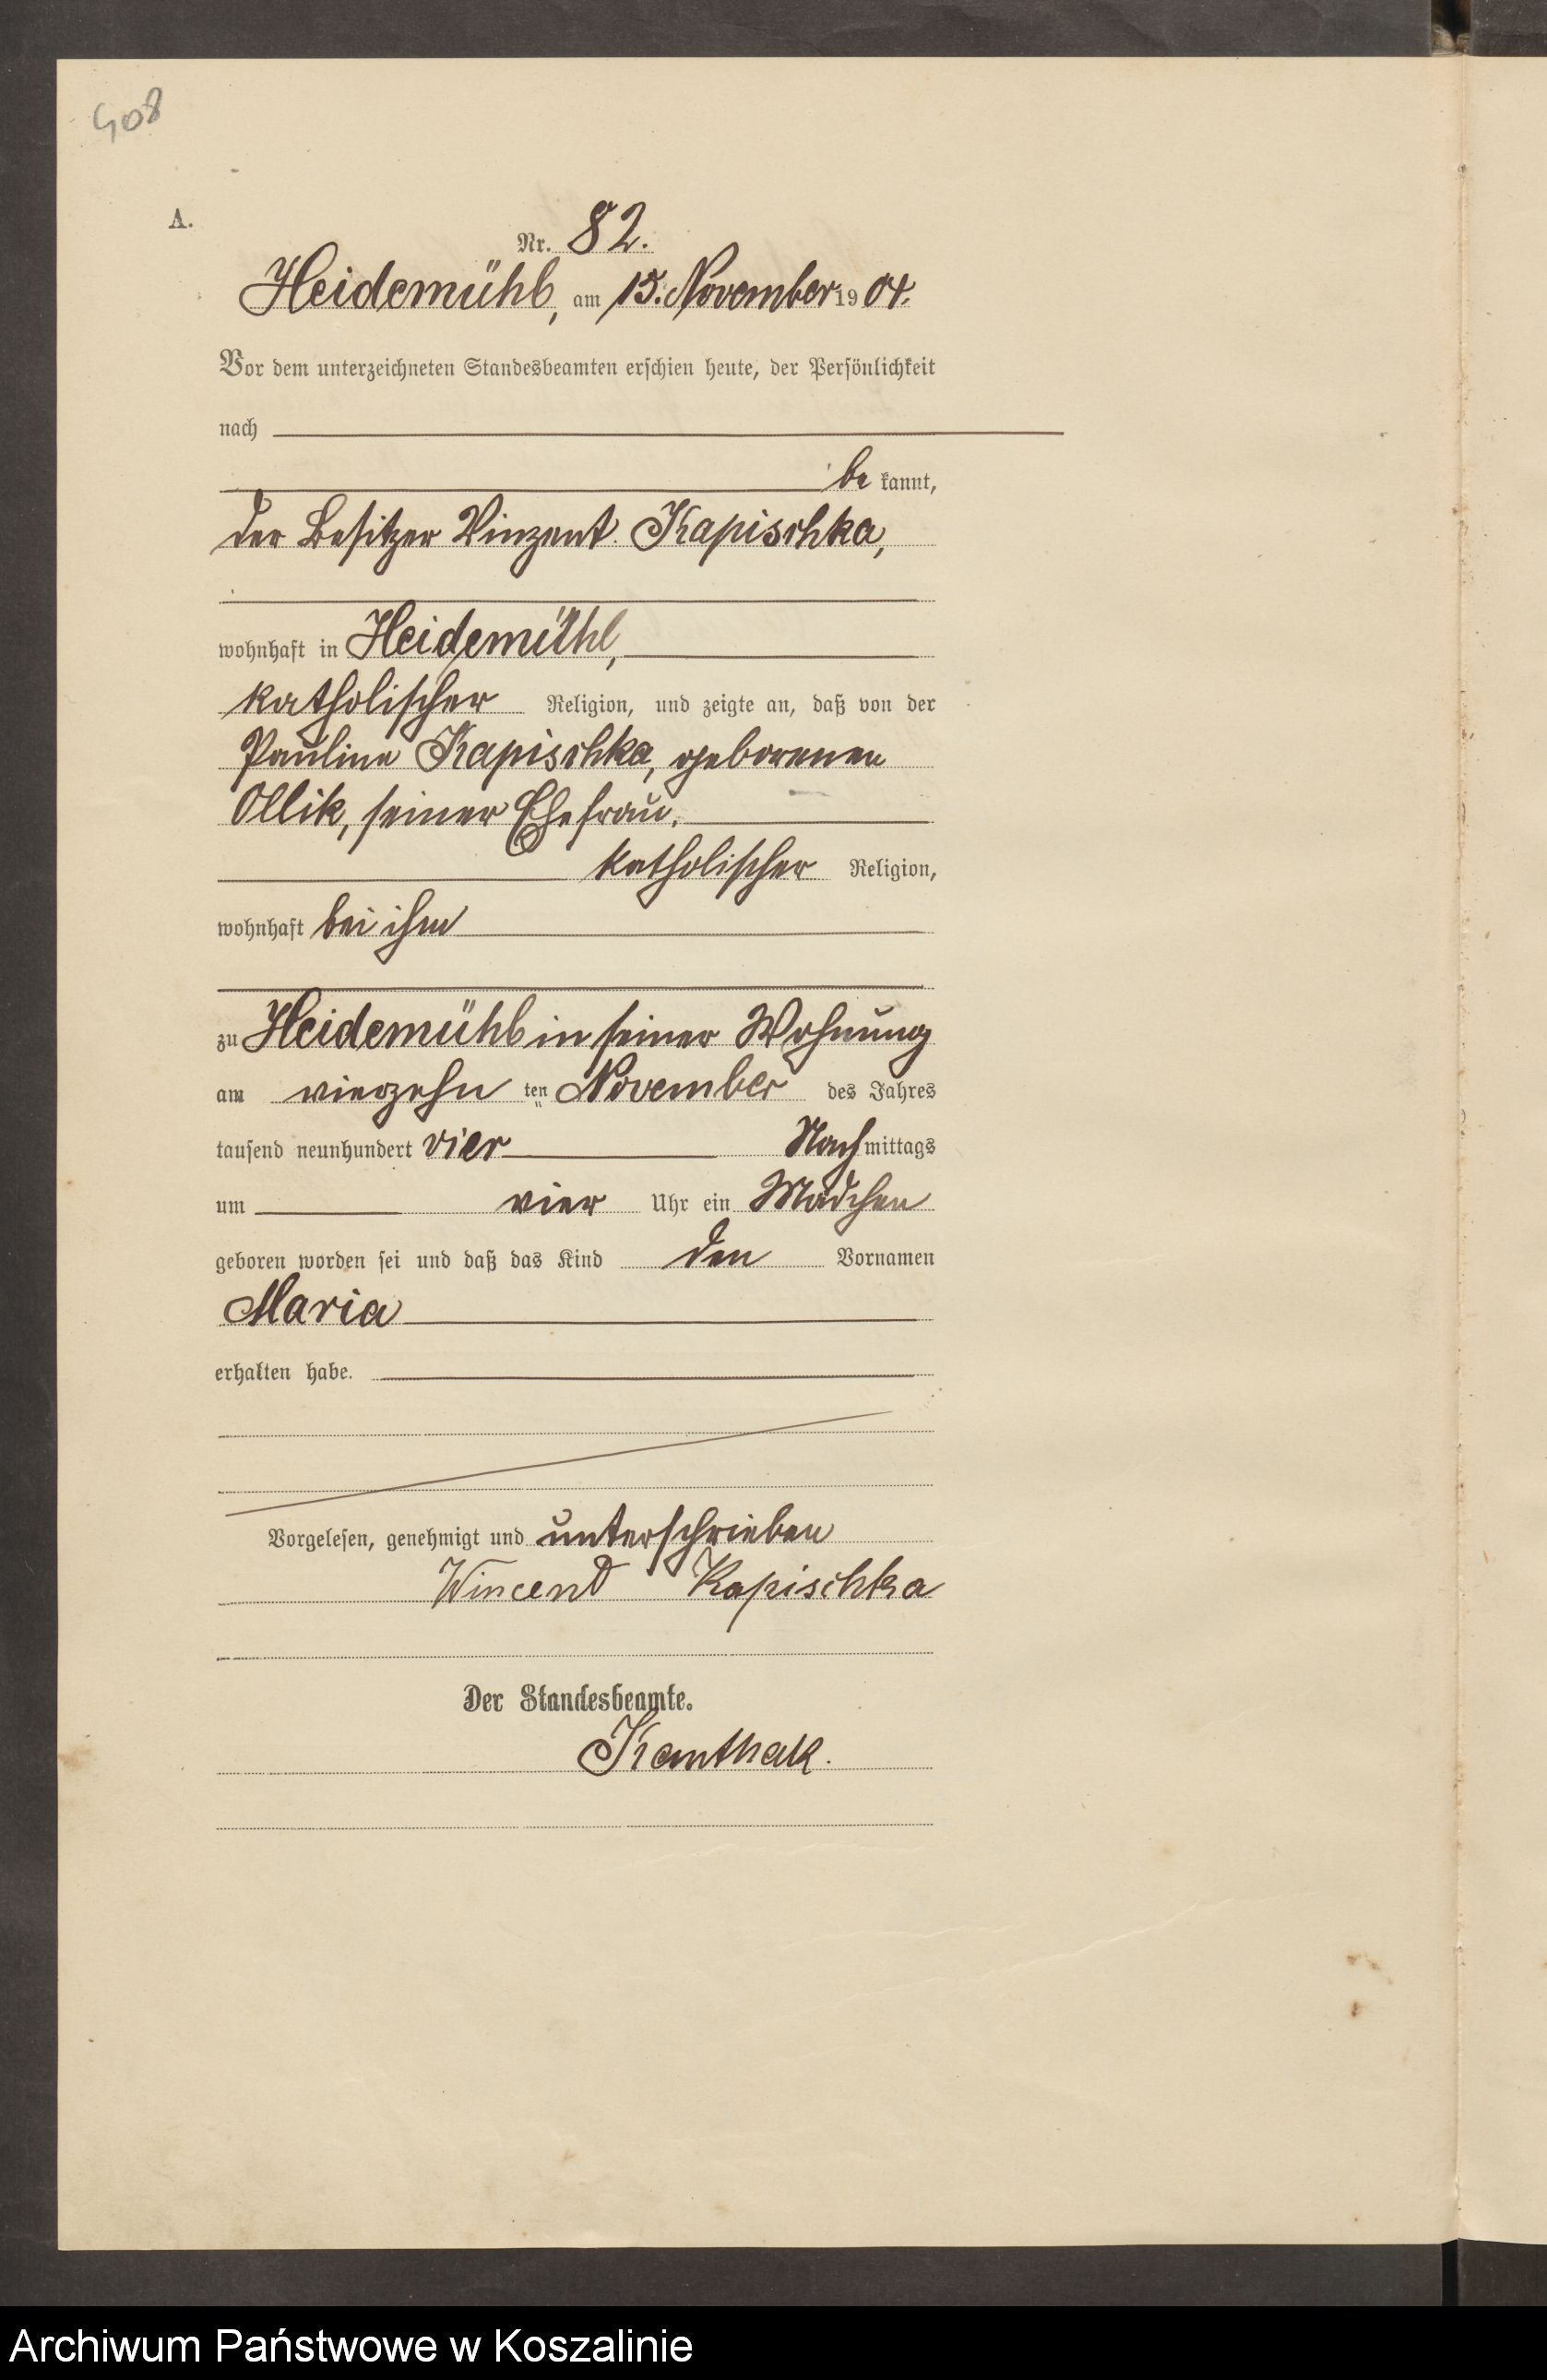 408
A.
Nr. 82.
Heidemühl, am 15. November 1904.
Vor dem unterzeichneten Standesbeamten erschien heute, der Persönlichkeit
nach
be kannt,
der Besitzer Vinzent Kapischka,
wohnhaft in Heidemühl,
katholischer Religion, und zeigte an, daß von der
Pauline Kapischka, geborenen
Ollik, seiner Ehefrau,
katholischer Religion,
wohnhaft bei ihm
zu Heidemühl in seiner Wohnung
am vierzehn ten November des Jahres
tausend neunhundert vier Nachmittags
um vier Uhr ein Mädchen
geboren worden sei und daß das Kind den Vornamen
Maria
erhalten habe.
Vorgelesen, genehmigt und unterschrieben
Wincent Kapischka
Der Standesbeamte.
Kanthak.
Archiwum Państwowe w Koszalinie